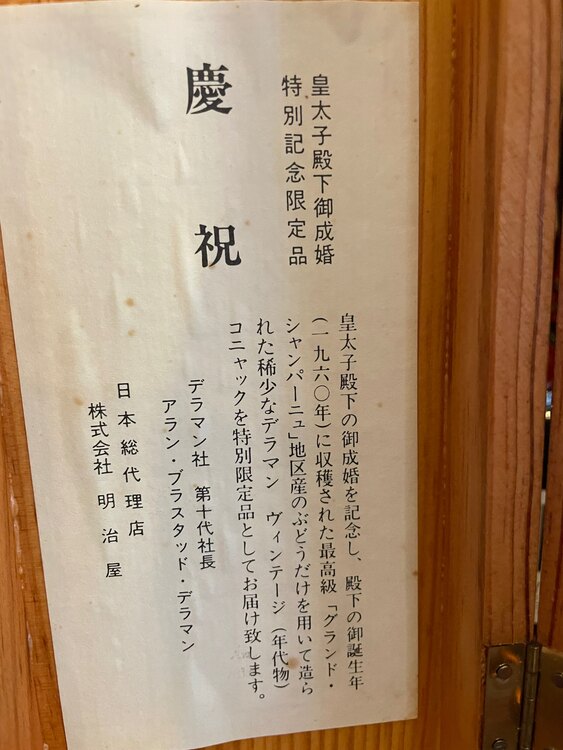 皇太子殿下御成婚
特別記念限定品
慶祝
皇太子殿下の御成婚を記念し、殿下の御誕生年
(一九六〇年)に収穫された最高級「グランド・
シャンパーニュ」地区産のぶどうだけを用いて造ら
れた稀少なデラマン ヴィンテージ(年代物)
コニャックを特別限定品としてお届け致します。
デラマン社 第十代社長
アラン・ブラスタッド・デラマン
日本総代理店
株式会社 明治屋